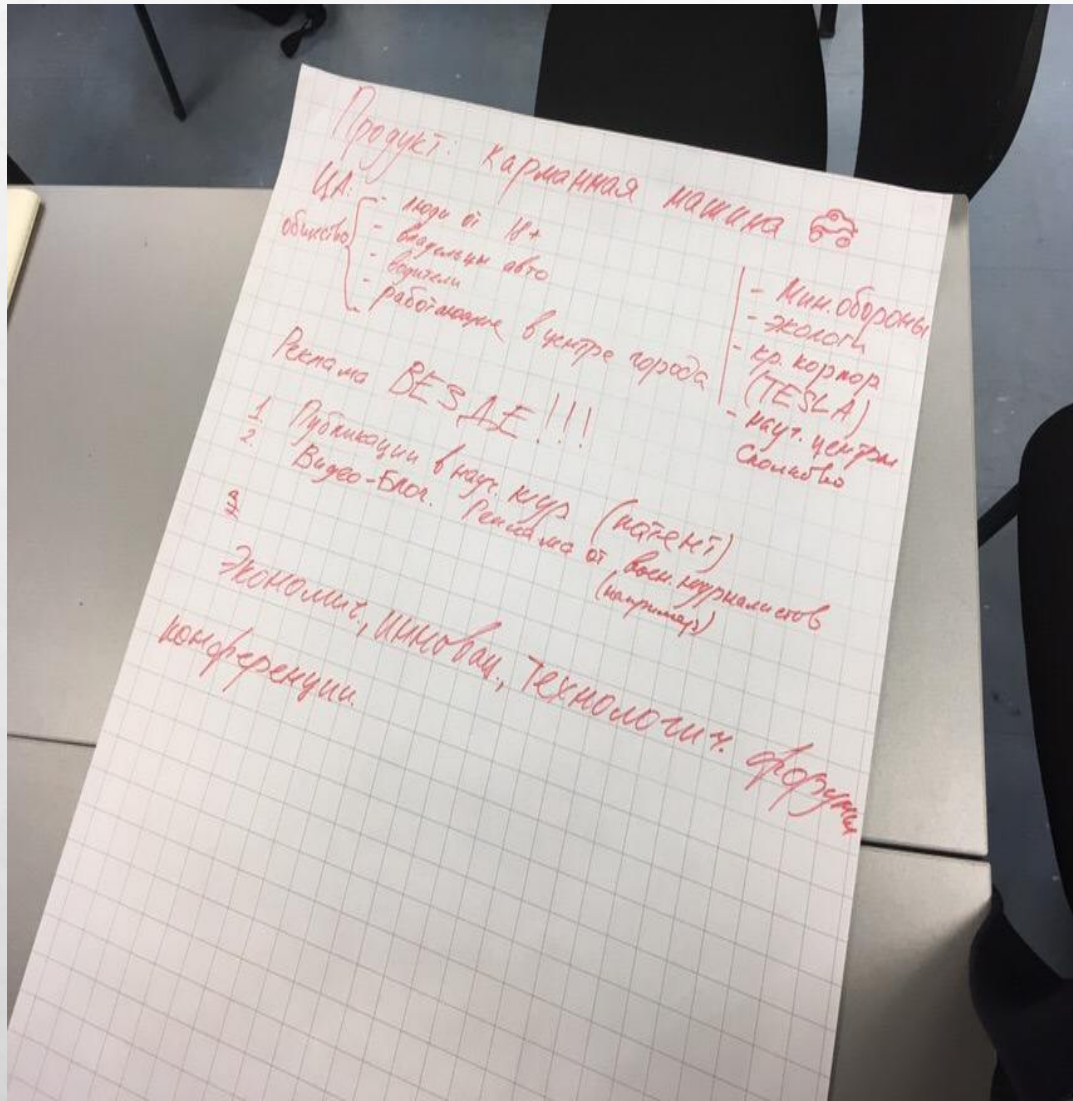 Продукт: карманная машина
ЦА: - люди от 18+
общество - владельцы авто
- водители
- работающие в центре города
- Мин. обороны
- экологи
- кр. корпор.
(TESLA)
- науч. центры
Сколково
Реклама ВЕЗДЕ!!!
1 Публикации в науч. жур. (патент)
2 Видео-блог. Реклама от воен. журналистов
(например)
3
Экономич., инновац., технологич. форумы
конференции.